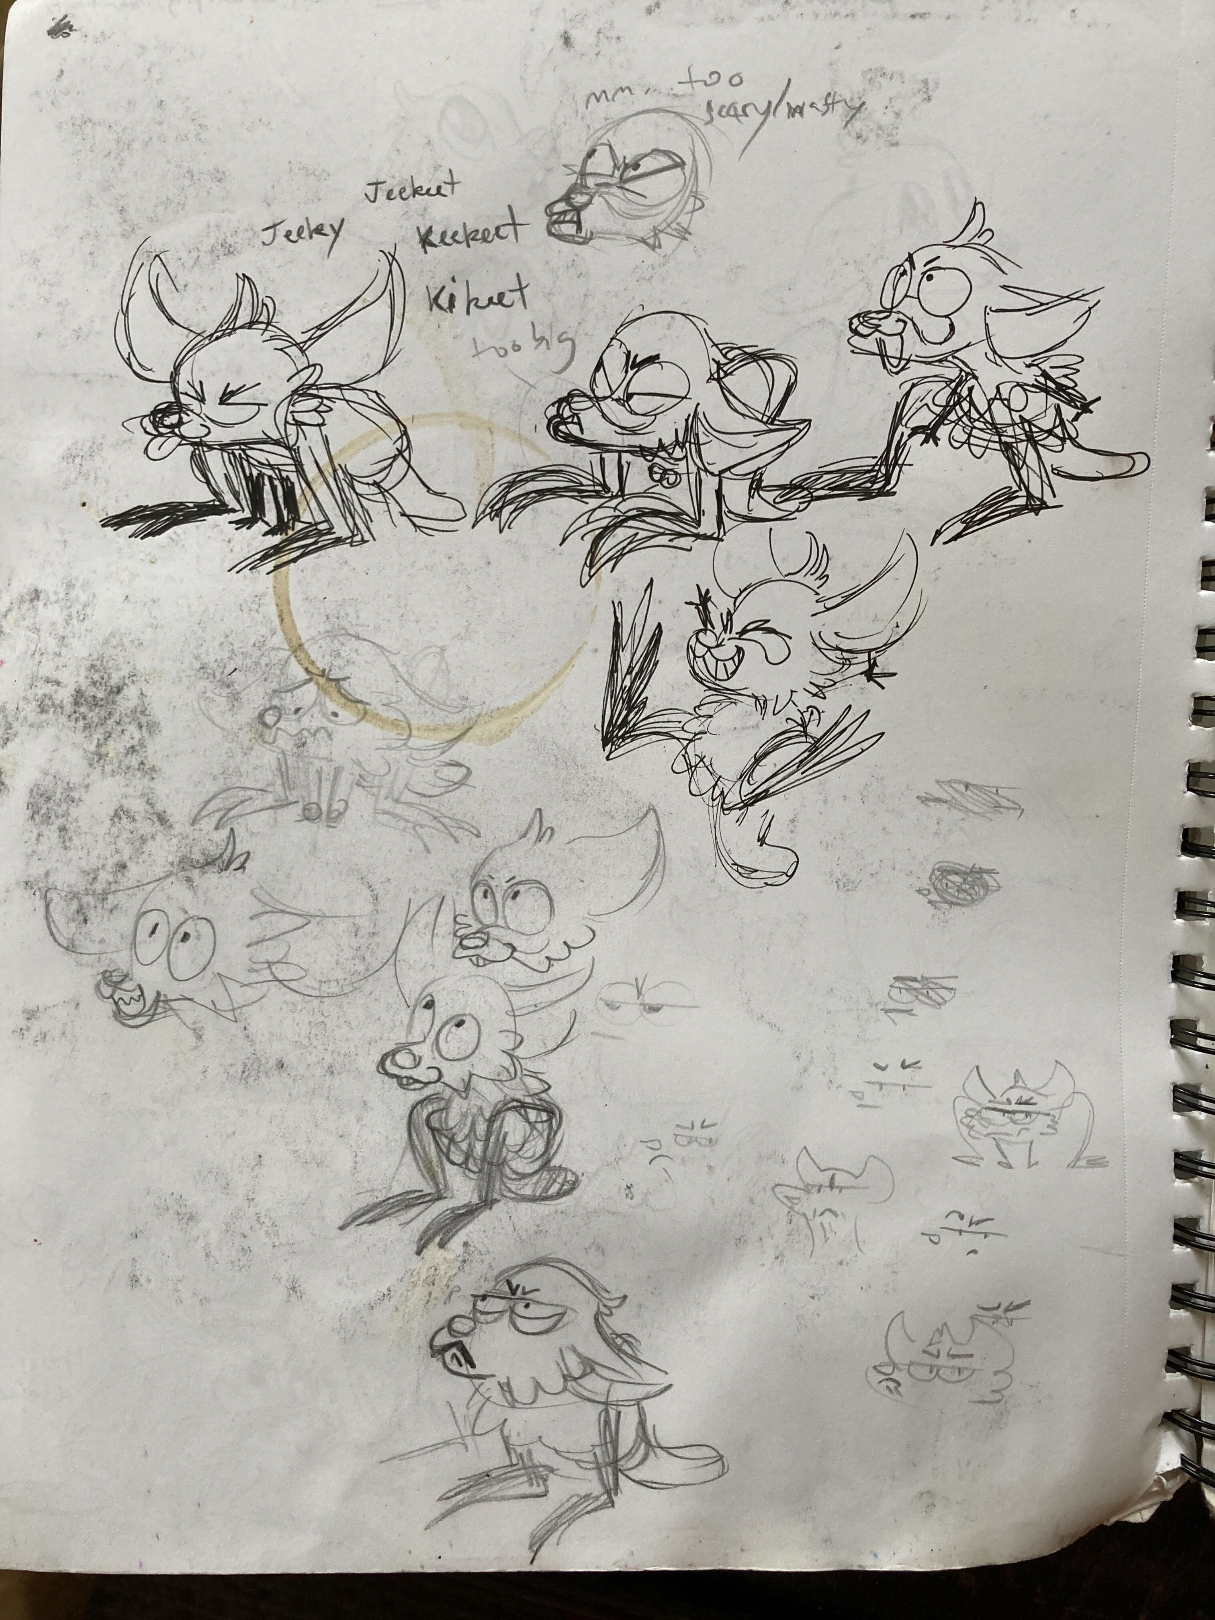 mm... too
scary/nasty
Jeekeet
Jeeky
Keekeet
Kikeet
too big